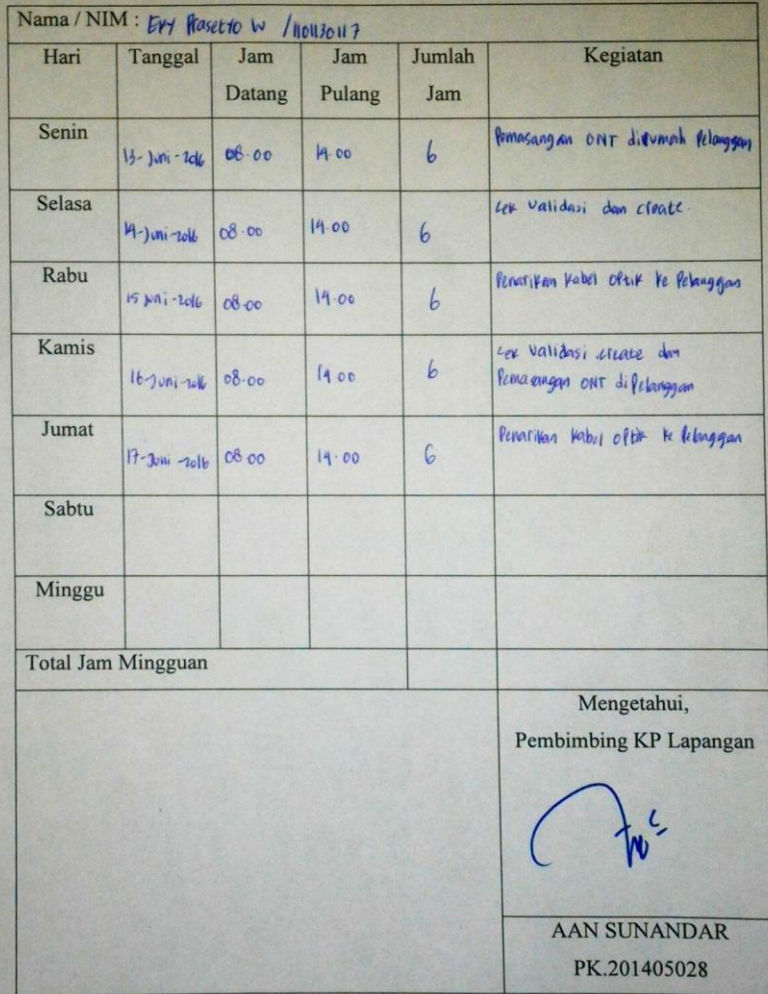 Nama / NIM : Ery Prasetyo W / 1101130117
Hari Tanggal Jam Datang Jam Pulang Jumlah Jam Kegiatan
Senin 13-Juni-2016 08.00 14.00 6 Pemasangan ONT dirumah Pelanggan
Selasa 14-Juni-2016 08.00 14.00 6 Cek validasi dan create.
Rabu 15 Juni-2016 08.00 14.00 6 Penarikan kabel optik ke Pelanggan
Kamis 16-Juni-2016 08.00 14.00 6 Cek validasi create dan
Pemasangan ONT di Pelanggan
Jumat 17-Juni-2016 08.00 14.00 6 Penarikan kabel optik ke Pelanggan
Sabtu
Minggu
Total Jam Mingguan
Mengetahui,
Pembimbing KP Lapangan
AAN SUNANDAR
PK.201405028